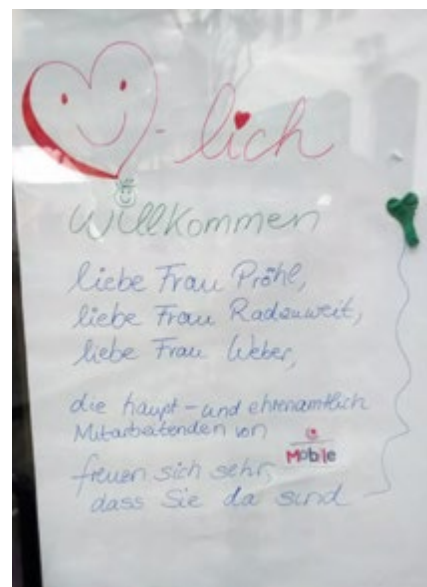 -lich
Willkommen
liebe Frau Pröhl,
liebe Frau Radzuweit,
liebe Frau Weber,
die haupt- und ehrenamtlich
Mitarbeitenden von
Mobile
freuen sich sehr,
dass Sie da sind